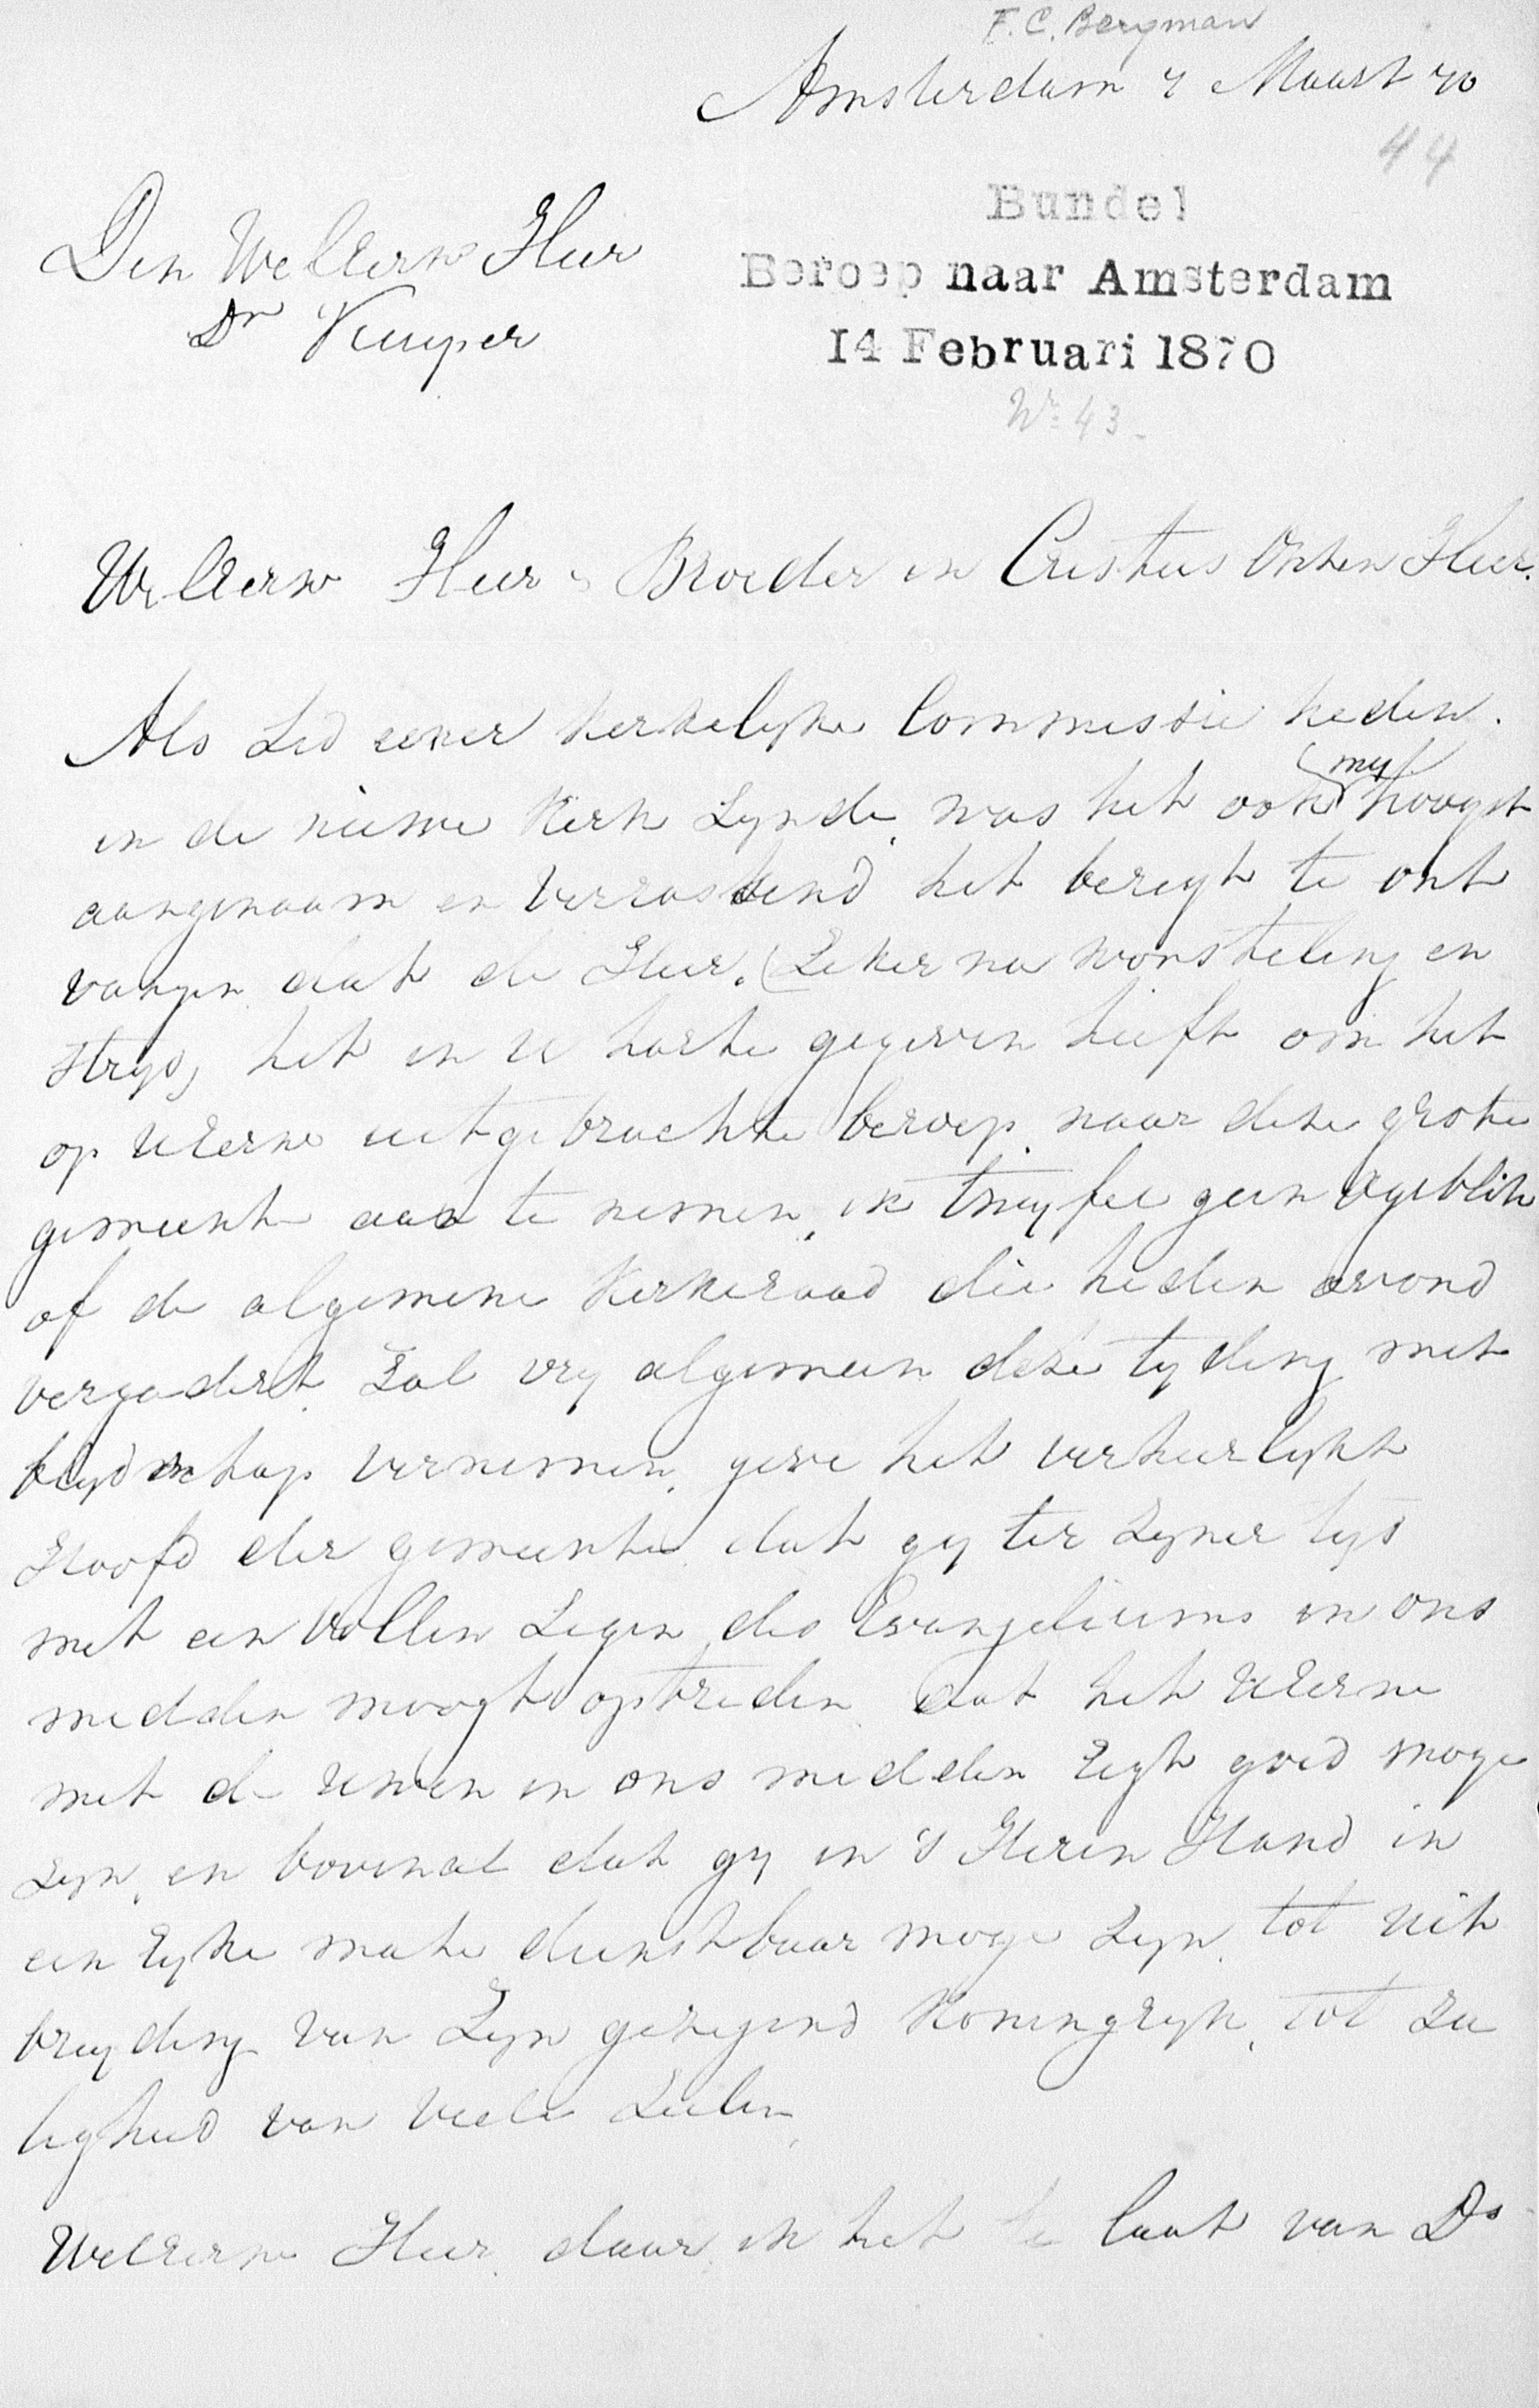 F. C. Bergman
Amsterdam 7 Maart 70
44
Den WelEerw Heer
Dr Kuyper
Bundel
Beroep naar Amsterdam
14 Februari 1870
No 43
WelEerw Heer & Broeder in Cristus Onzen Heer.
Als Lid eener kerkelyke Commissie heden
in de nieuwe Kerk Zynde, was het ook my hoogst
aangenaam en verrassend het berigt te ont
vangen dat de Heer, (Zeker na worsteling en
stryd) het in U harte gegeven heeft om het
op UEerw uitgebrachte beroep naar deze grote
gemeente aan te nemen, ik twyfel geen ogeblik
of de algemene Kerkeraad die heden avond
vergadert zal vry algemeen deze tyding met
blydschap vernemen, geve het verheerlykt
Hoofd der gemeente dat gy ter zyner tyd
met een vollen Zegen des Evangeliums in ons
midden moogt optreden dat het UEerw
met de uwen in ons midden regt goed moge
zyn, en bovenal dat gy in 's Heren Hand in
een ryke mate dienstbaar moge zyn, tot uit
breyding van Zyn gezegend Koningryk, tot za
ligheid van veele Zielen
WelEerw Heer daar ik het te laat van Ds